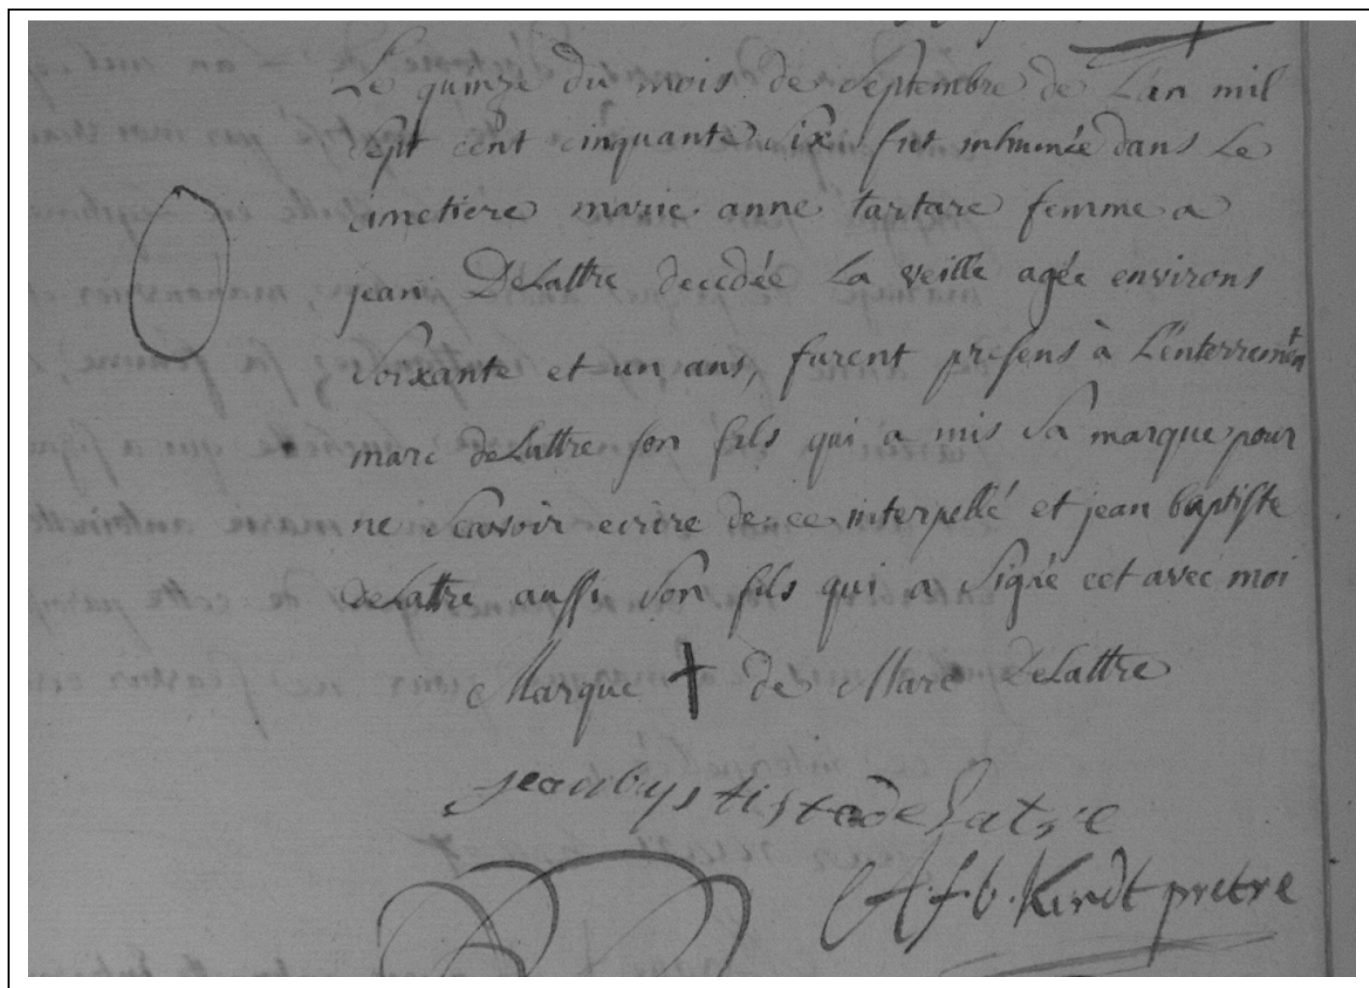 Le quinze du mois de septembre de Lan mil
sept cent cinquante six fut inhumée dans Le
cimetiere marie anne tartare femme a
jean DeLattre decedée La veille agée environs
soixante et un ans, furent presens à L'enterrement
marc deLattre son fils qui a mis sa marque pour
ne scavoir ecrire de ce interpellé et jean baptiste
deLattre aussi son fils qui a signé cet avec moi
Marque † de Marc DeLattre
jeanbaptiste delatre
A.f.b. Kindt pretre